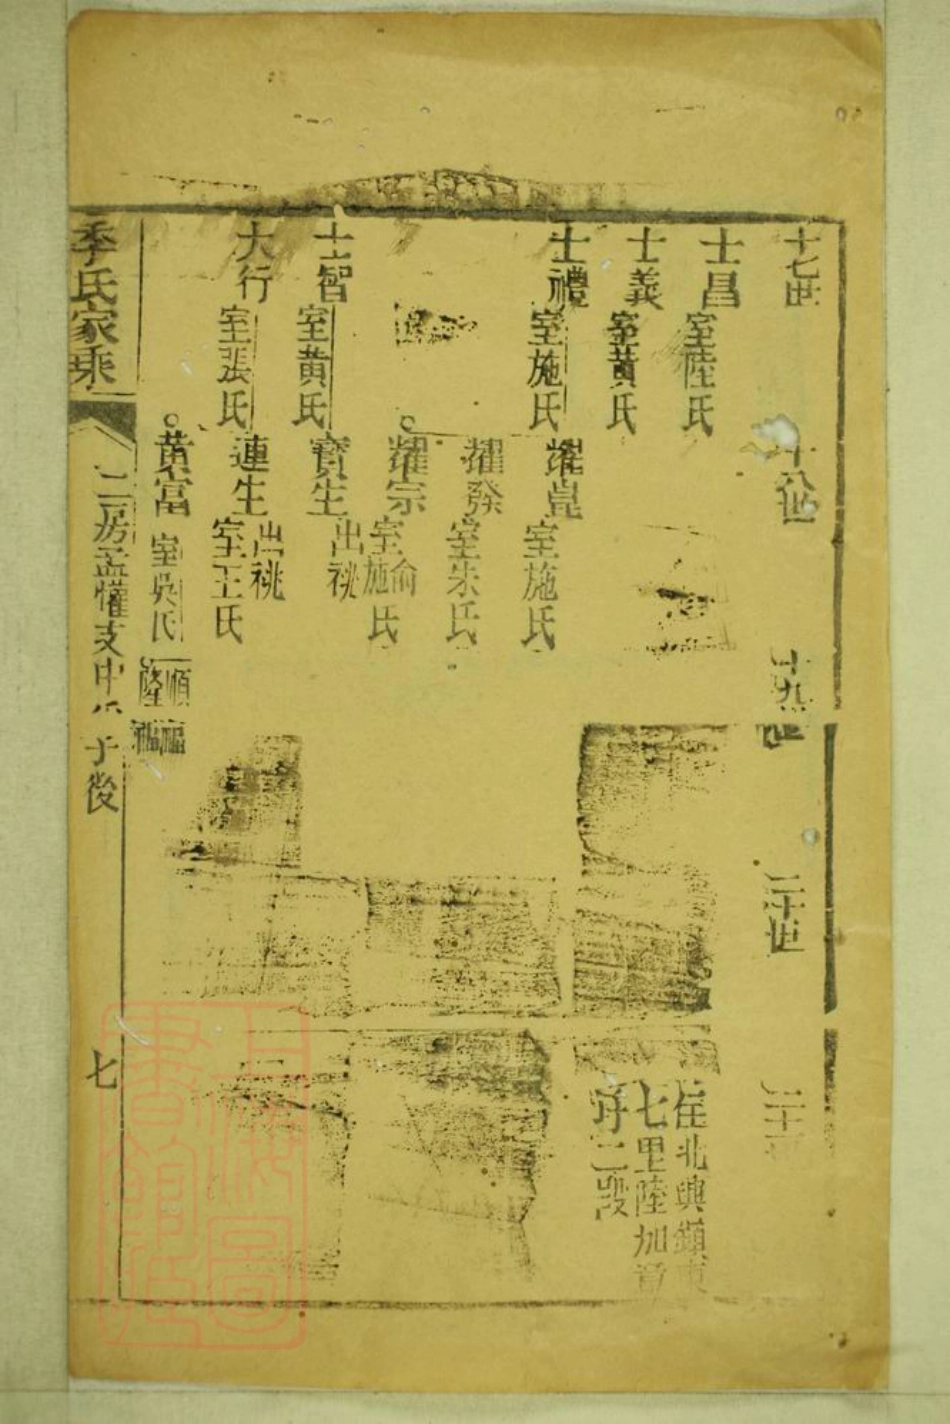 十七世
十八世
十九世
二十世
二十一
士昌 室陸氏
士義 室黄氏
士禮 室施氏
士智 室黄氏
大行 室張氏
耀崑 室施氏
耀發 室朱氏
耀宗 室施氏 俞
寶生 出祧
連生 出祧 室王氏
黄富 室吳氏
順福
隆福
住北興鎮東
七里陸加
圩二段
季氏家乘
二房孟懽支中
子後
七